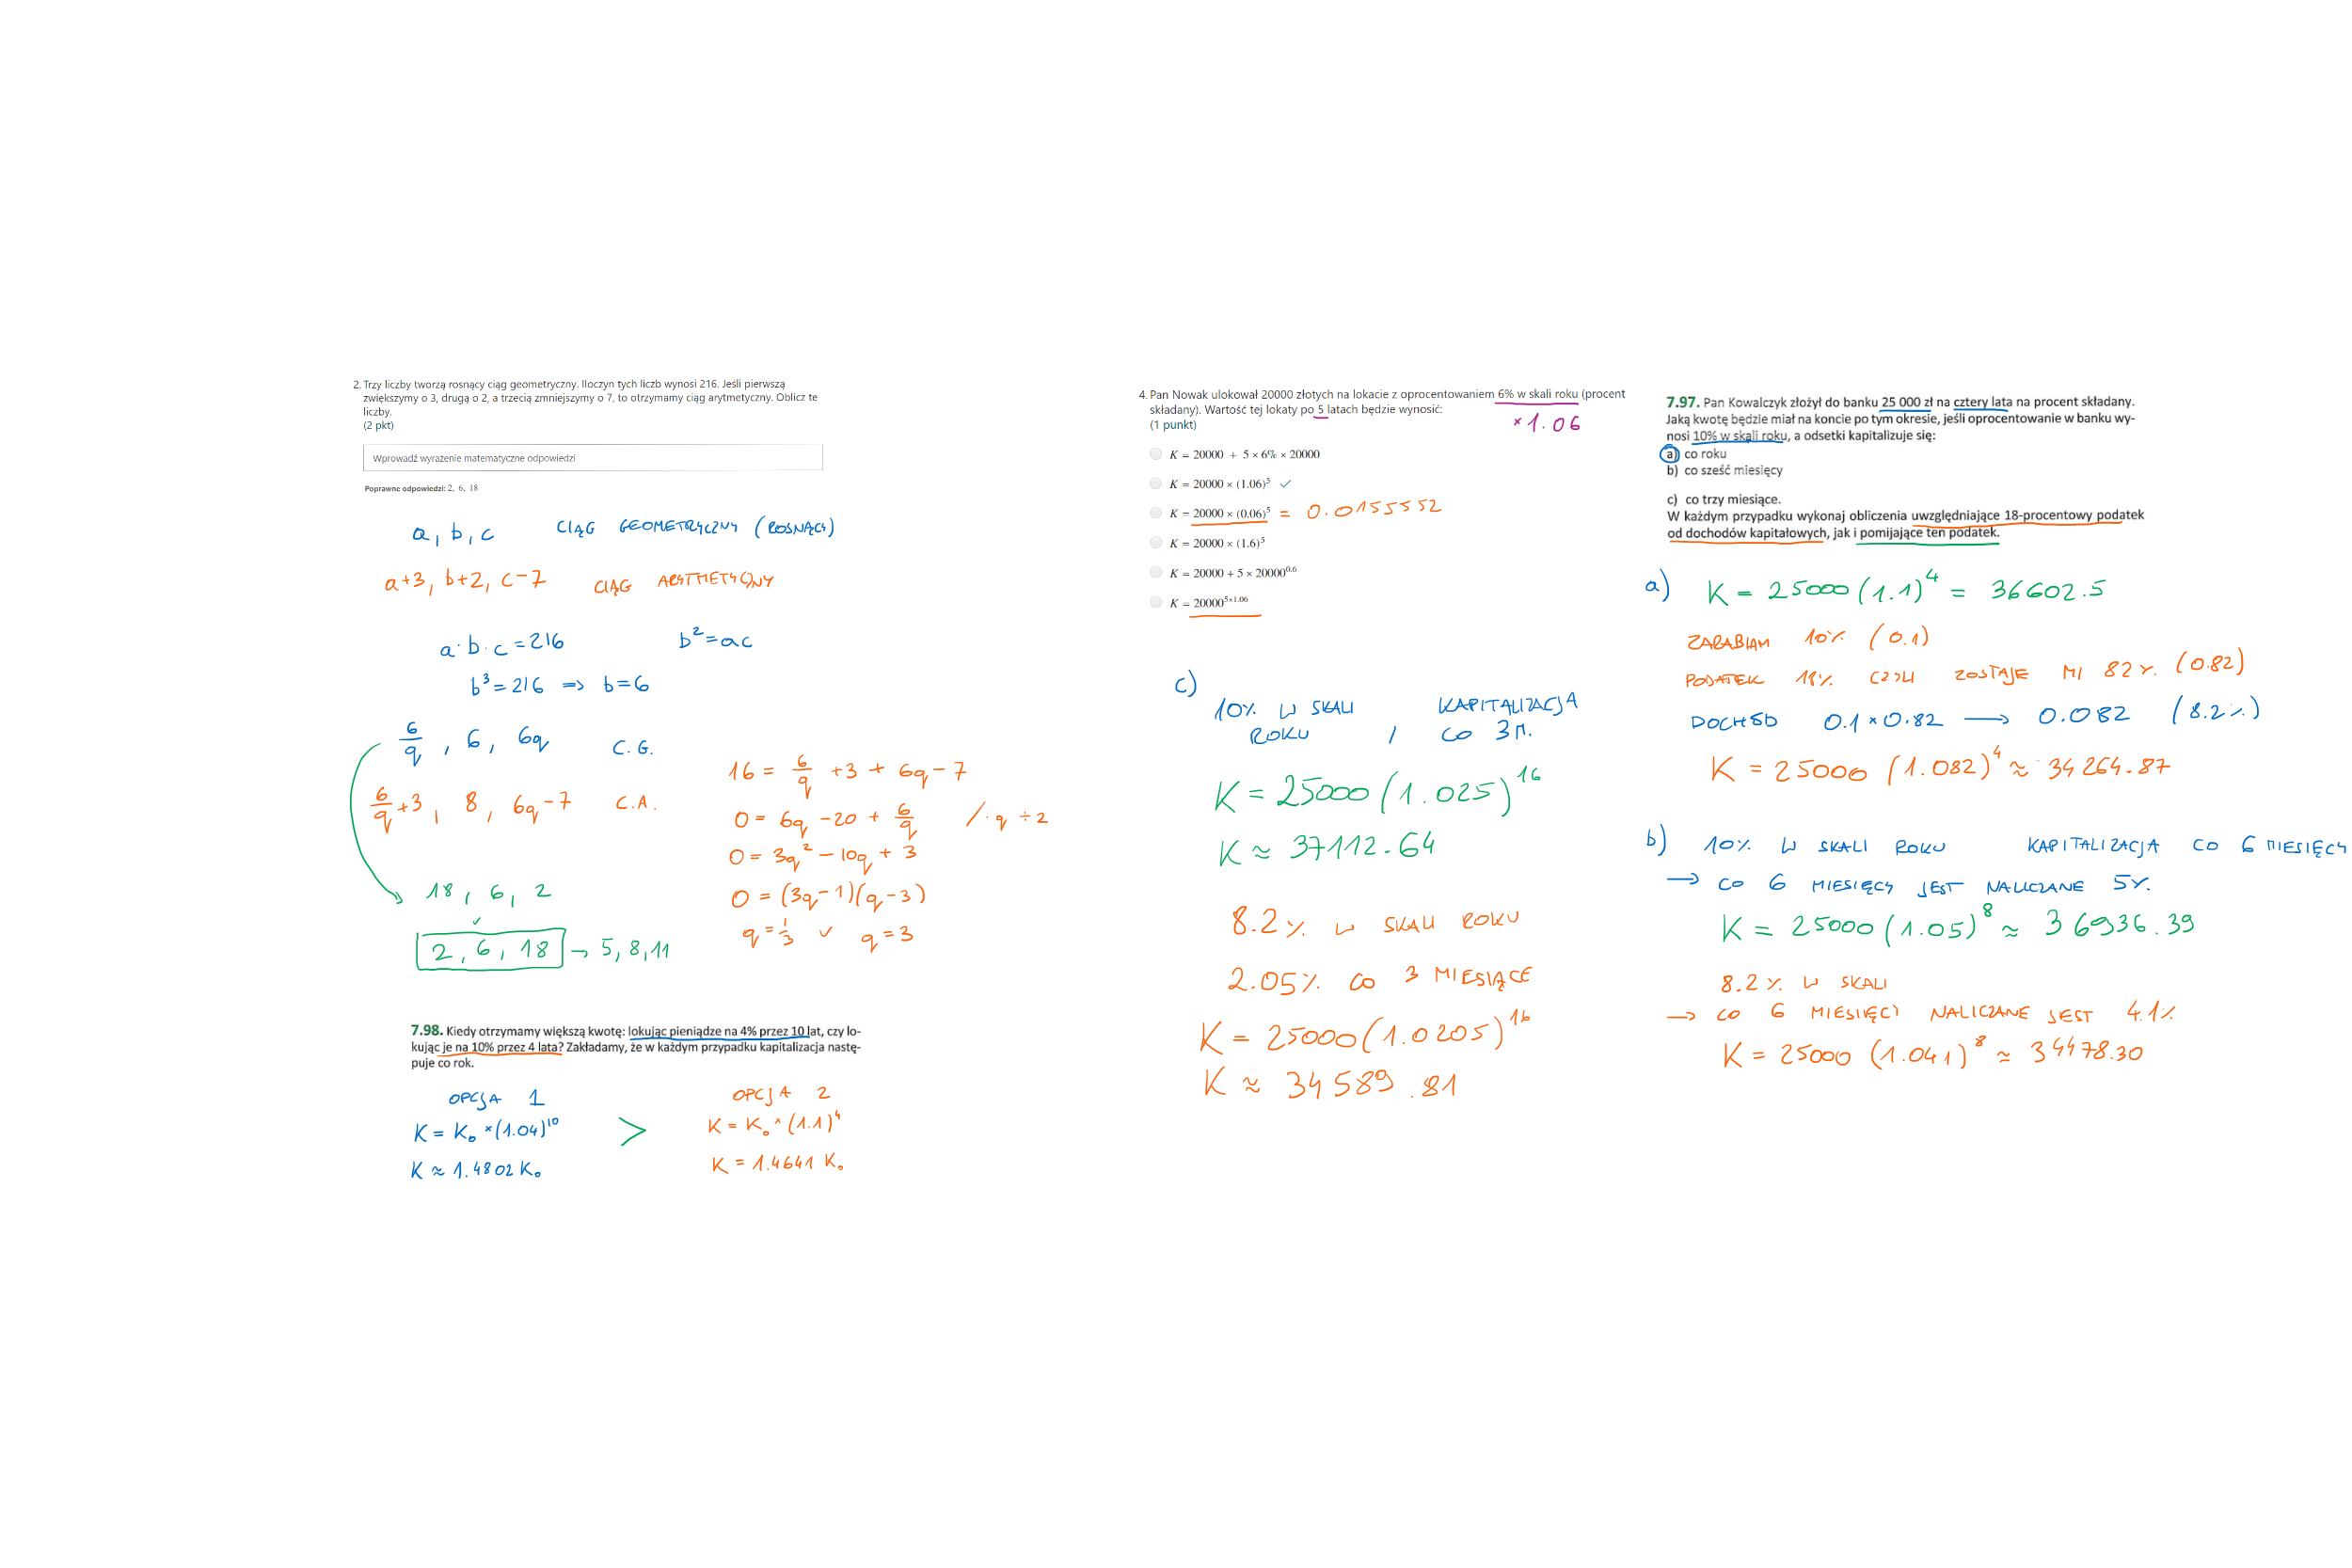 2. Trzy liczby tworzą rosnący ciąg geometryczny. Iloczyn tych liczb wynosi 216. Jeśli pierwszą
zwiększymy o 3, drugą o 2, a trzecią zmniejszymy o 7, to otrzymamy ciąg arytmetyczny. Oblicz te
liczby.
(2 pkt)
Wprowadź wyrażenie matematyczne odpowiedzi
Poprawne odpowiedzi: 2, 6, 18
a, b, c CIĄG GEOMETRYCZNY (ROSNĄCY)
a+3, b+2, c-7 CIĄG ARYTMETYCZNY
a·b·c=216 b²=ac
b³=216 => b=6
6/q, 6, 6q C.G.
6/q+3, 8, 6q-7 C.A.
18, 6, 2
✓
2, 6, 18 → 5, 8, 11
16 = 6/q +3 + 6q - 7
0 = 6q - 20 + 6/q /·q ÷2
0 = 3q² - 10q + 3
0 = (3q-1)(q-3)
q = 1/3 ∨ q = 3
7.98. Kiedy otrzymamy większą kwotę: lokując pieniądze na 4% przez 10 lat, czy lo-
kując je na 10% przez 4 lata? Zakładamy, że w każdym przypadku kapitalizacja nastę-
puje co rok.
OPCJA 1
K = K₀ × (1.04)¹⁰
K ≈ 1.4802 K₀
>
OPCJA 2
K = K₀ × (1.1)⁴
K = 1.4641 K₀
4. Pan Nowak ulokował 20000 złotych na lokacie z oprocentowaniem 6% w skali roku (procent
składany). Wartość tej lokaty po 5 latach będzie wynosić:
(1 punkt)
×1.06
K = 20000 + 5 × 6% × 20000
K = 20000 × (1.06)⁵ ✓
K = 20000 × (0.06)⁵ = 0.0155552
K = 20000 × (1.6)⁵
K = 20000 + 5 × 20000^0.6
K = 20000^5×1.06
c)
10% W SKALI ROKU, KAPITALIZACJA CO 3 M.
K = 25000 (1.025)¹⁶
K ≈ 37112.64
8.2% W SKALI ROKU
2.05% CO 3 MIESIĄCE
K = 25000 (1.0205)¹⁶
K ≈ 34589.81
7.97. Pan Kowalczyk złożył do banku 25 000 zł na cztery lata na procent składany.
Jaką kwotę będzie miał na koncie po tym okresie, jeśli oprocentowanie w banku wy-
nosi 10% w skali roku, a odsetki kapitalizuje się:
a) co roku
b) co sześć miesięcy
c) co trzy miesiące.
W każdym przypadku wykonaj obliczenia uwzględniające 18-procentowy podatek
od dochodów kapitałowych, jak i pomijające ten podatek.
a) K = 25000 (1.1)⁴ = 36602.5
ZARABIAM 10% (0.1)
PODATEK 18% CZYLI ZOSTAJE MI 82% (0.82)
DOCHÓD 0.1 × 0.82 → 0.082 (8.2%)
K = 25000 (1.082)⁴ ≈ 34264.87
b) 10% W SKALI ROKU KAPITALIZACJA CO 6 MIESIĘCY
→ CO 6 MIESIĘCY JEST NALICZANE 5%.
K = 25000 (1.05)⁸ ≈ 36936.39
8.2% W SKALI
→ CO 6 MIESIĘCY NALICZANE JEST 4.1%
K = 25000 (1.041)⁸ ≈ 34478.30